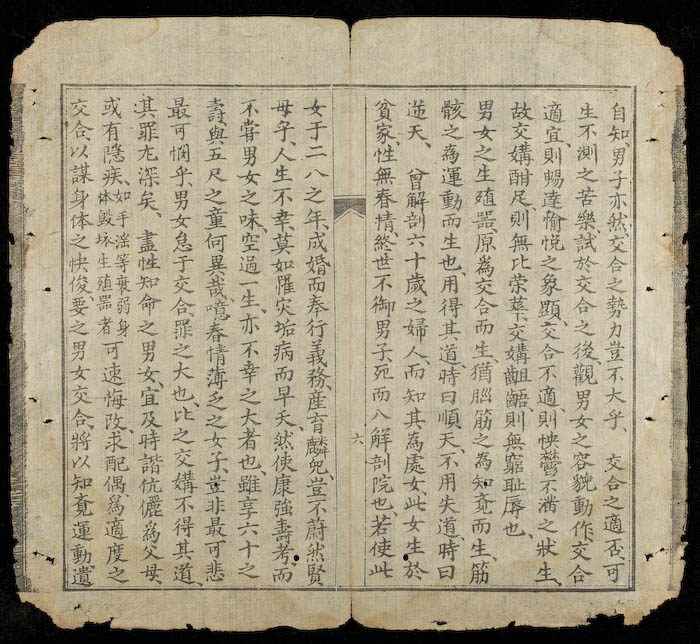 自知、男子亦然、交合之勢力豈不大乎、　交合之適否、可
生不測之苦樂、試於交合之後、觀男女之容貌動作、交合
適宜、則暢達愉悅之象顯、交合不適、則怏鬱不滿之狀生、
故交媾酣足、則無比荣華、交媾齟齬、則無窮耻辱也、
男女之生殖器、原為交合而生、猶腦筋之為知覓而生、筋
骸之為運動而生也、用得其道時曰順天、不用失道時曰
逆天、　曾解剖六十歲之婦人、而知其為處女、此女生於
貧家、性無春情、終世不御男子、死而入解剖院也、若使此
六
女于二八之年、成婚而奉行義務、産育麟兒、豈不蔚然賢
母乎、人生不幸、莫如罹灾垢病而早夭、然使康強壽考、而
不嘗男女之味、空過一生、亦不幸之大者也、雖享六十之
壽、與五尺之童何異哉、噫春情薄乏之女子、豈非最可悲
最可憫乎、男女怠于交合、罪之大也、比之交媾不得其道、
其罪尤深矣、　盡性知命之男女、宜及時諧伉儷為父母、
或有隱疾、如手淫等衰弱身
体毀坏生殖器者可速悔改、求配偶、為適度之
交合、以謀身体之快俊、要之男女交合、將以知覓運動、遺